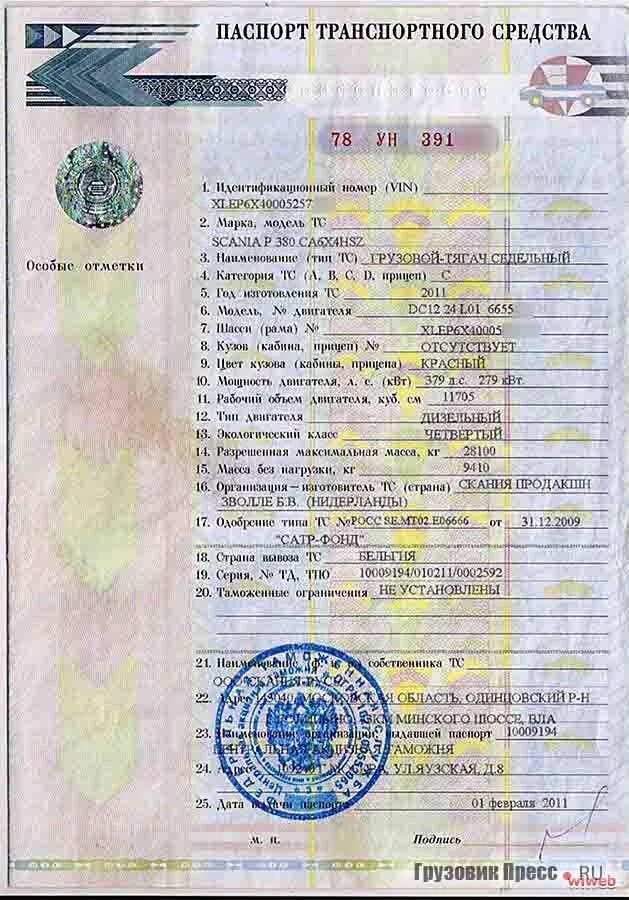 ПАСПОРТ ТРАНСПОРТНОГО СРЕДСТВА
78 УН 391
1. Идентификационный номер (VIN)
XLEP6X40005257
2. Марка, модель ТС
SCANIA P 380 CA6X4HSZ
Особые отметки
3. Наименование (тип ТС) ГРУЗОВОЙ-ТЯГАЧ СЕДЕЛЬНЫЙ
4. Категория ТС (A, B, C, D, прицеп) C
5. Год изготовления ТС 2011
6. Модель, № двигателя DC12 24 L01 6655
7. Шасси (рама) № XLEP6X40005
8. Кузов (кабина, прицеп) № ОТСУТСТВУЕТ
9. Цвет кузова (кабины, прицепа) КРАСНЫЙ
10. Мощность двигателя, л. с. (кВт) 379 л.с. 279 кВт.
11. Рабочий объем двигателя, куб. см 11705
12. Тип двигателя ДИЗЕЛЬНЫЙ
13. Экологический класс ЧЕТВЕРТЫЙ
14. Разрешенная максимальная масса, кг 28100
15. Масса без нагрузки, кг 9410
16. Организация—изготовитель ТС (страна) СКАНИЯ ПРОДАКШН
ЗВОЛЛЕ Б.В. (НИДЕРЛАНДЫ)
17. Одобрение типа ТС № РОСС SE.MT02.E06666 от 31.12.2009
"САТР-ФОНД"
18. Страна вывоза ТС БЕЛЬГИЯ
19. Серия, № ТД, ТПО 10009194/010211/0002592
20. Таможенные ограничения НЕ УСТАНОВЛЕНЫ
21. Наименование собственника ТС
ООО "СКАНИЯ-РУСЬ"
22. Адрес МОСКОВСКАЯ ОБЛАСТЬ, ОДИНЦОВСКИЙ Р-Н
МИНСКОГО ШОССЕ, ВЛА
23. Наименование организации, выдавшей паспорт 10009194
ЦЕНТРАЛЬНАЯ АКЦИЗНАЯ ТАМОЖНЯ
24. Адрес УЛ.ЯУЗСКАЯ, Д.8
25. Дата выдачи паспорта 01 февраля 2011
м. п. Подпись
Грузовик Пресс .RU
wiweb